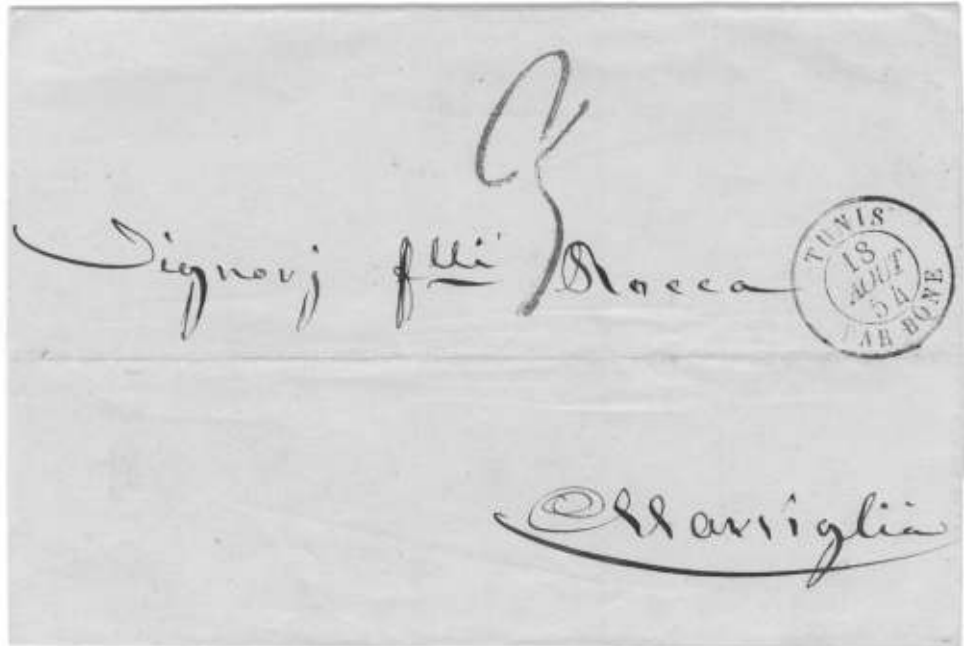 3
Signorj f.lli Rocca
TUNIS
18
AOUT
54
PAR BONE
Marsiglia